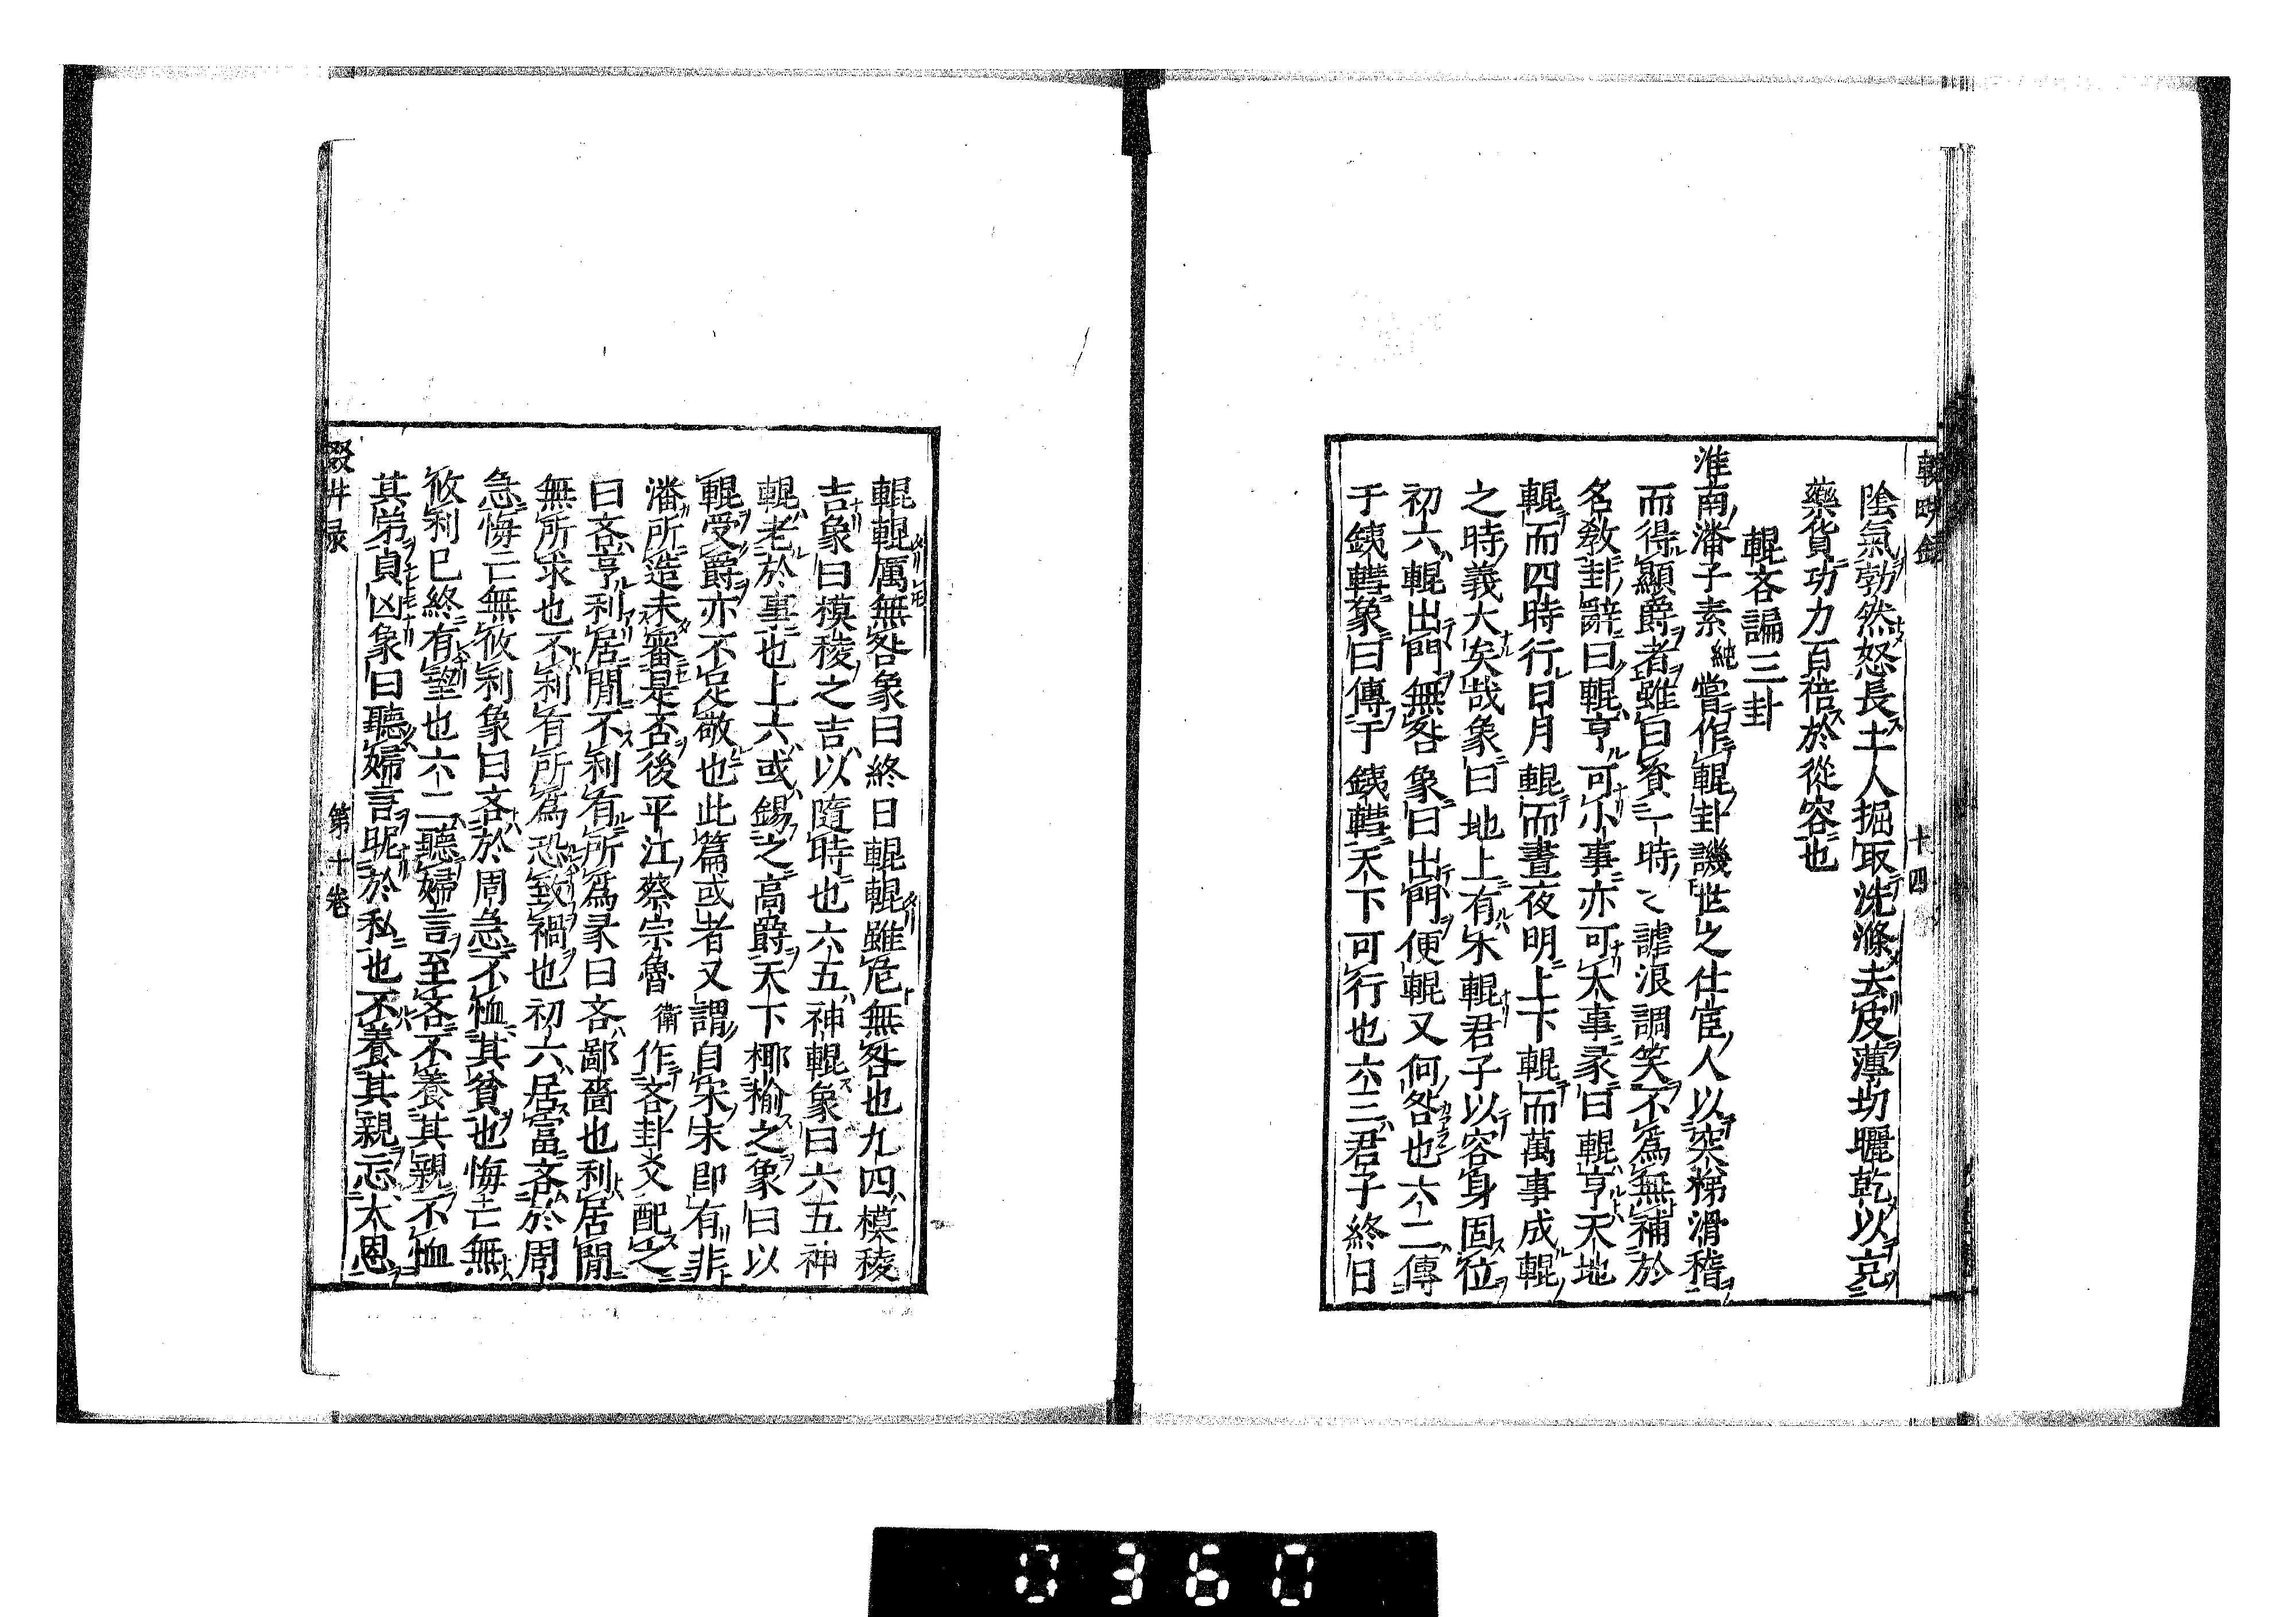 輟畊錄
十四
陰氣勃然怒長土人掘取洗滌去皮薄切曬乾以充
藥貨功力百倍於從容也
輥吝諞三卦
淮南潘子素純嘗作輥卦譏世之仕宦人以突梯滑稽
而得顯爵者雖曰資一時〻謔浪調笑不為無補於
名教卦辭曰輥亨可小事亦可大事彖曰輥亨天地
輥而四時行日月輥而晝夜明上下輥而萬事成輥
之時義大矣哉象曰地上有木輥君子以容身固位
初六輥出門無咎象曰出門便輥又何咎也六二傳
于銕轊象曰傳于銕轊天下可行也六三君子終日
輥輥厲無咎象曰終日輥輥雖危無咎也九四模稜
吉象曰模稜之吉以隨時也六五神輥象曰六五神
輥老於事也上六或錫之高爵天下揶揄之象曰以
輥受爵亦不足敬也此篇或者又謂自宋末即有非
潘所造未審是否後平江蔡宗魯衛作吝卦爻配之
曰吝亨利居閒不利有所為彖曰吝鄙嗇也利居閒
無所求也不利有所為恐致禍也初六居富吝於周
急悔亡無攸利象曰吝於周急不恤其貧也悔亡無
攸利已終有望也六二聽婦言至吝不養其親不恤
其弟貞凶象曰聽婦言昵於私也不養其親忘大恩
輟井录
第十卷
0360